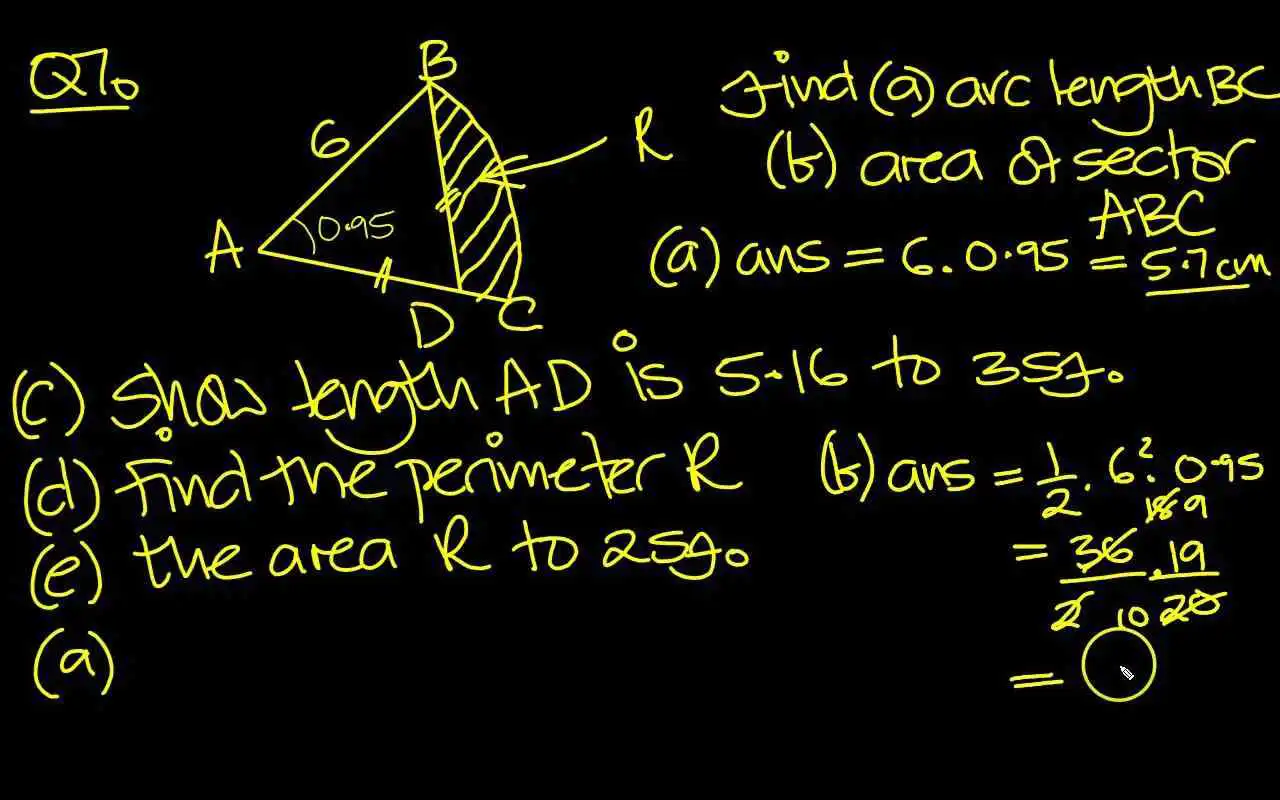 Q7.
B
6
R
A
0.95
D
C
Find (a) arc length BC
(b) area of sector
ABC
(a) ans = 6.0.95 = 5.7cm
(c) show length AD is 5.16 to 3sf.
(d) Find the perimeter R
(e) the area R to 2sf.
(a)
(b) ans = 1/2 . 6². 0.95
18 9
= 36/2 . 19/20
10
=